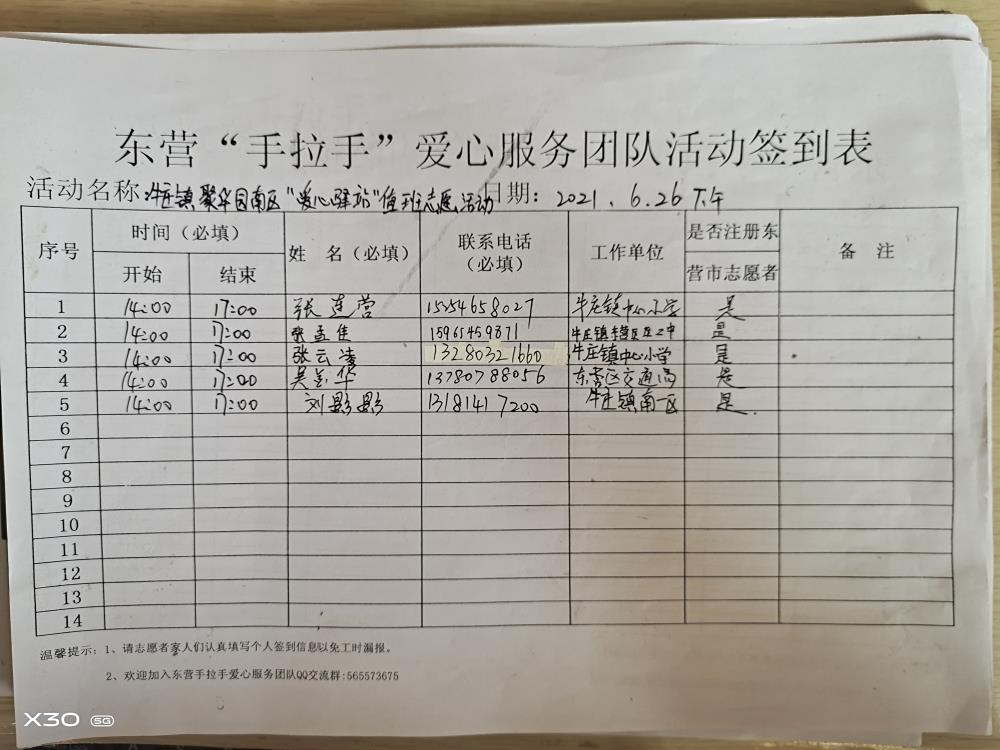 东营“手拉手”爱心服务团队活动签到表
活动名称:牛庄镇聚华园南区“爱心驿站”值班志愿活动 日期: 2021.6.26 下午
序号 时间（必填） 姓 名（必填） 联系电话（必填） 工作单位 是否注册东营市志愿者 备 注
开始 结束
1 14:00 17:00 张连营 15254658027 牛庄镇中心小学 是
2 14:00 17:00 张孟佳 15965459871 牛庄镇 是
3 14:00 17:00 张云凌 13280321660 牛庄镇中心小学 是
4 14:00 17:00 吴 华 13780788056 东营区交通局 是
5 14:00 17:00 刘影影 13181417200 牛庄镇南一区 是.
6
7
8
9
10
11
12
13
14
温馨提示: 1、请志愿者家人们认真填写个人签到信息以免工时漏报。
2、欢迎加入东营手拉手爱心服务团队QQ交流群:565573675
X30 5G